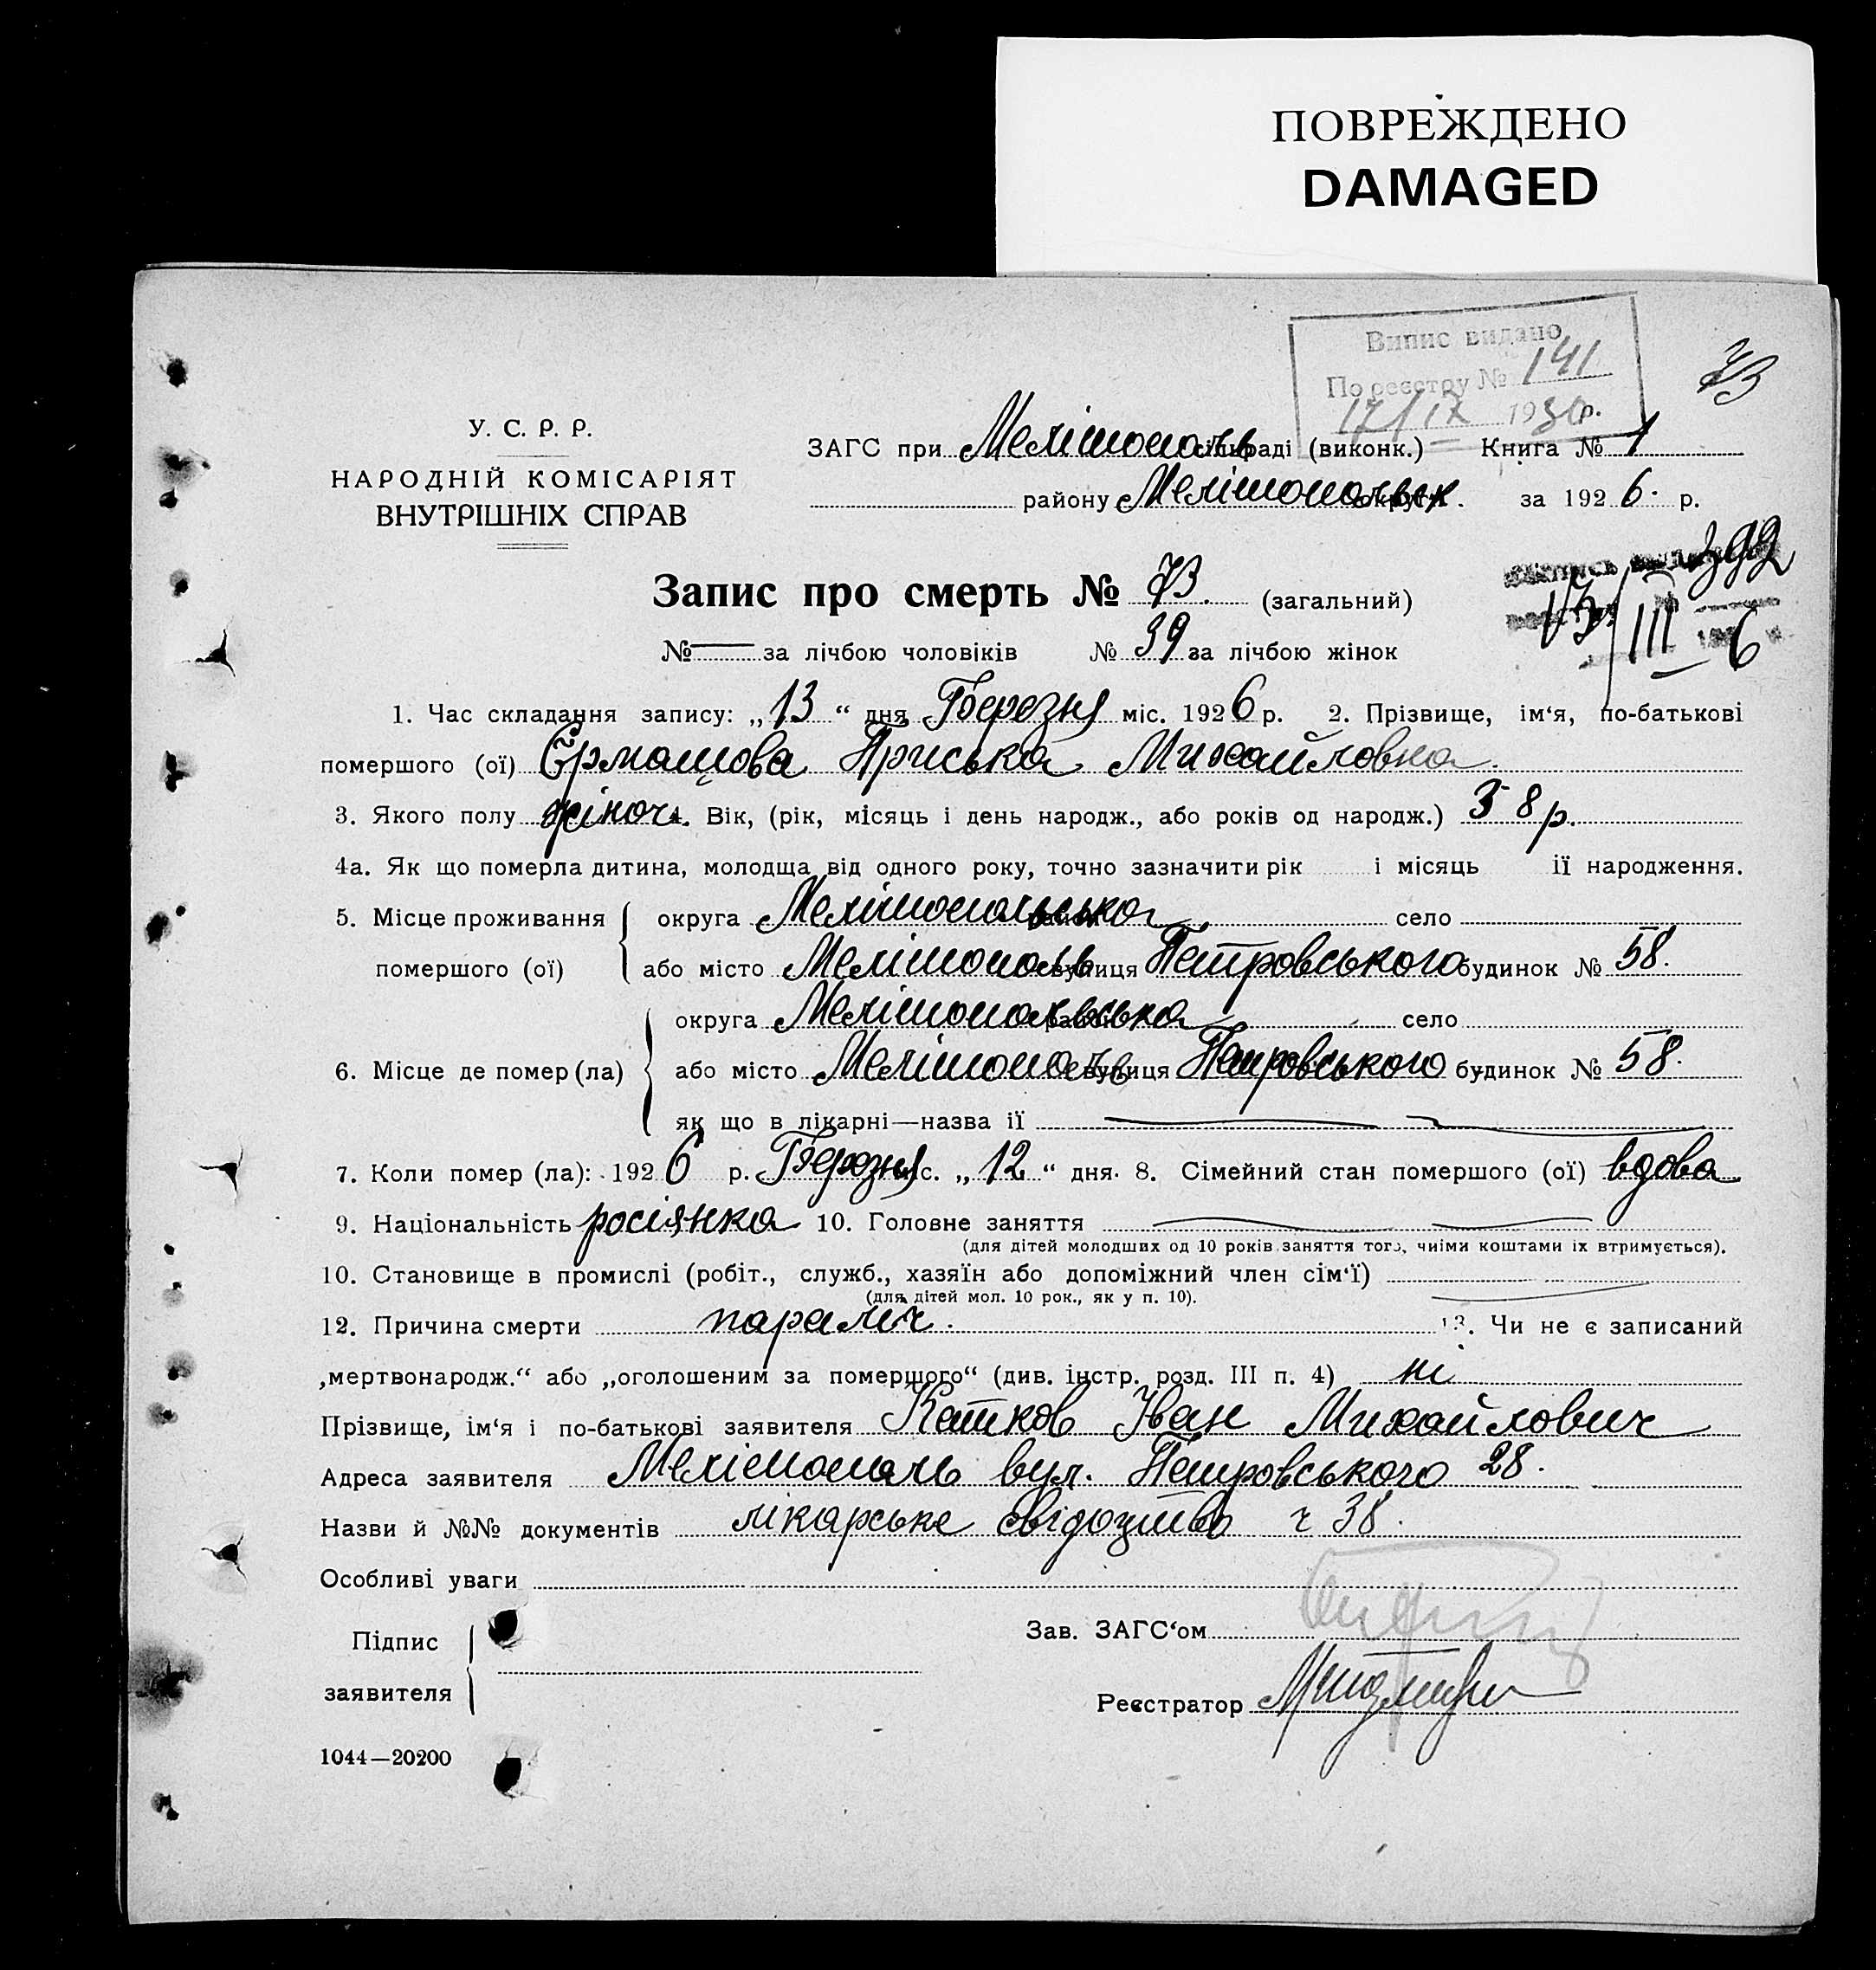 ПОВРЕЖДЕНО
DAMAGED
Випис видано
По реєстру № 141
17/IX 1930 р.
73
У. С. Р. Р.
НАРОДНІЙ КОМІСАРІЯТ
ВНУТРІШНІХ СПРАВ
ЗАГС при Мелітополь сільраді (виконк.) Книга № 1
району Мелітопольск округи. за 1926 р.
392
13/III 6
Запис про смерть № 73. (загальний)
№ — за лічбою чоловіків № 39 за лічбою жінок
1. Час складання запису: „13“ дня Березня міс. 1926 р. 2. Прізвище, ім‘я, по-батькові
помершого (ої) Єрмашова Приська Михайловна.
3. Якого полу жіноч. 4. Вік, (рік, місяць і день народж., або років од народж.) 58 р.
4а. Як що померла дитина, молодща від одного року, точно зазначити рік і місяць її народження.
5. Місце проживання помершого (ої) округа Мелітопольська район село
або місто Мелітополь вулиця Петровського будинок № 58.
6. Місце де помер (ла) округа Мелітопольська район село
або місто Мелітополь вулиця Петровського будинок № 58.
як що в лікарні—назва її —
7. Коли помер (ла): 1926 р. Березня міс. „12“ дня. 8. Сімейний стан помершого (ої) вдова
9. Національність росіянка 10. Головне заняття —
(для дітей молодших од 10 років заняття того, чиїми коштами їх втримується).
10. Становище в промислі (робіт., служб., хазяїн або допоміжний член сім‘ї) —
(для дітей мол. 10 рок., як у п. 10).
12. Причина смерти параліч. 13. Чи не є записаний
„мертвонародж.“ або „оголошеним за помершого“ (див. інстр. розд. III п. 4) ні
Прізвище, ім‘я і по-батькові заявителя Катков Іван Михайлович
Адреса заявителя Мелітополь вул. Петровського 28.
Назви й №№ документів лікарське свідоцтво ч 38.
Особливі уваги
Підпис
заявителя
Зав. ЗАГС‘ом
Реєстратор
1044—20200